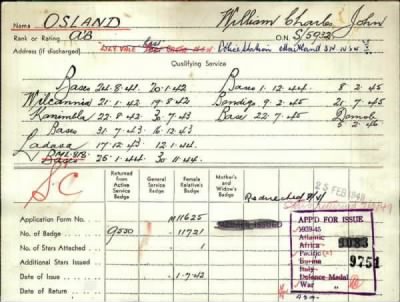 Name OSLAND William Charles John
Rank or Rating AB O.N. S/5932
Address (if discharged) Police Station Maitland
Qualifying Service
Bases 24.8.41. 20.1.42 Bases 1.12.44 8.2.45
Wilcannia 21.1.42 19.8.42 Bendigo 9.2.45 21.7.45
Kanimbla 22.8.42 3.7.43 Bases 22.7.45 Demob
Bases 31.7.43 16.12.43 5.2.46
Ladava 17.12.43 12.1.44
Bases 25.1.44 30.11.44
S.C
Returned from Active Service Badge
General Service Badge
Female Relative's Badge
Mother's and Widow's Badge
Redirected
25 FEB 1948
Application Form No. M11625
No. of Badge 9550 11721 ISSUED
No of Stars Attached 1
Additional Stars Issued
Date of Issue 1.7.42
Date of Return
APPD FOR ISSUE
1939-45
Atlantic
Africa 1083
Pacific
Burma 9751
Italy
Defence Medal
War